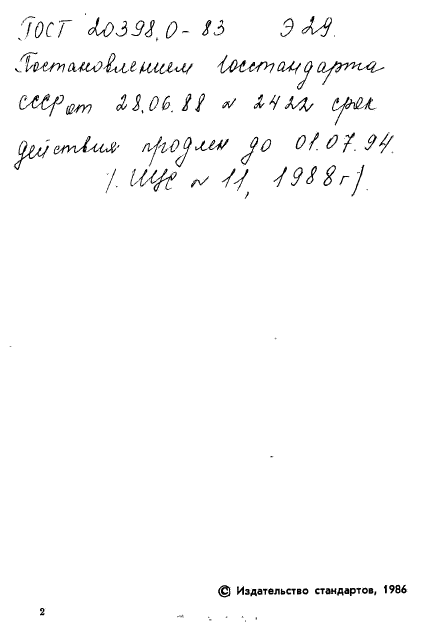 ГОСТ 20398.0-83 Э29.
Постановлением Госстандарта
СССР от 28.06.88 № 2422 срок
действия продлен до 01.07.94.
/. ИУС № 11, 1988 г/.
© Издательство стандартов, 1986
2